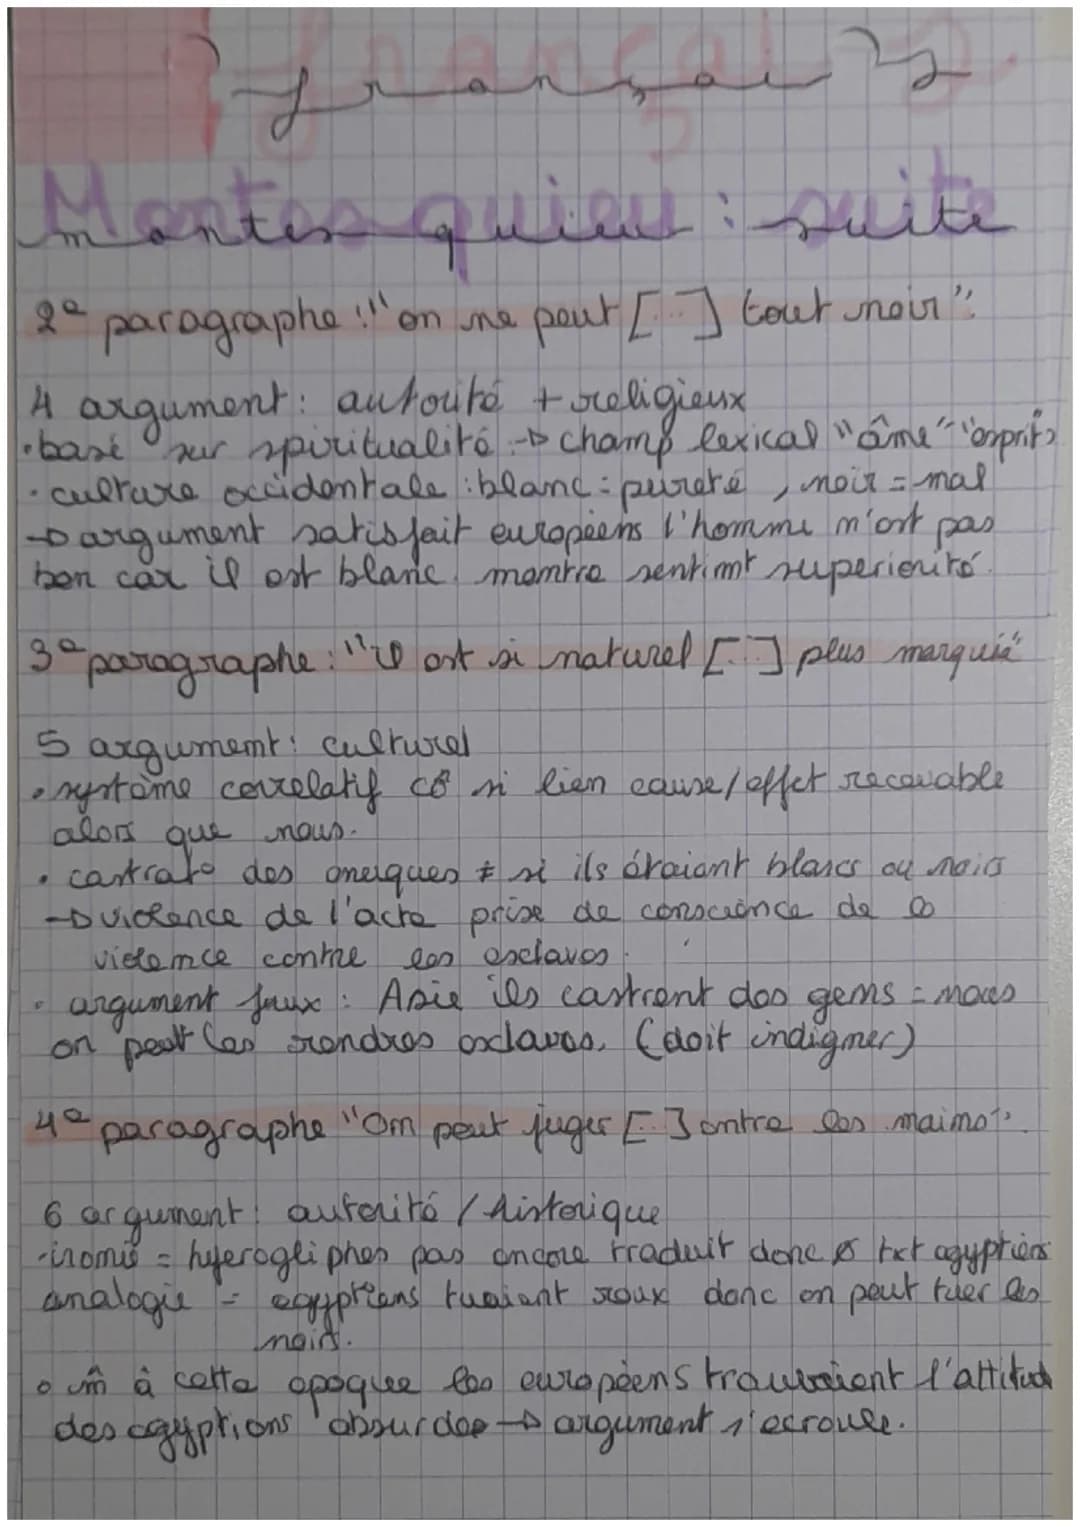 français
Montesquieu : suite
2e paragraphe : "on ne peut [...] tout noir":
4 argument : autorité + religieux
• basé sur spiritualité → champ lexical "âme" "esprit"
• culture occidentale : blanc = pureté, noir = mal
→ argument satisfait européens l'homme n'est pas
bon car il est blanc. montre sentimnt superiorité.
3e paragraphe : "il est si naturel [...] plus marquié"
5 argument : culturel
• système correlatif si lien cause/effet recevable
alors que nous.
• castrate des ≠ si ils étaient blancs ou noirs
→ violence de l'acte prise de conscience de
violence contre les esclaves.
• argument faux : Asie ils castrent des gens = nous
on peut les rendres esclaves. (doit indigner)
4e paragraphe "On peut juger [...] entre les mains".
6 argument : autorité / historique
• ironie = hyerogliphes pas encore traduit donc txt egyptiens
analogie = egyptiens tuaient roux donc on peut tuer les
noirs.
• m̂ à cette epoque les européens trouvaient l'attitud
des egyptions absurdes → argument s'ecroule.